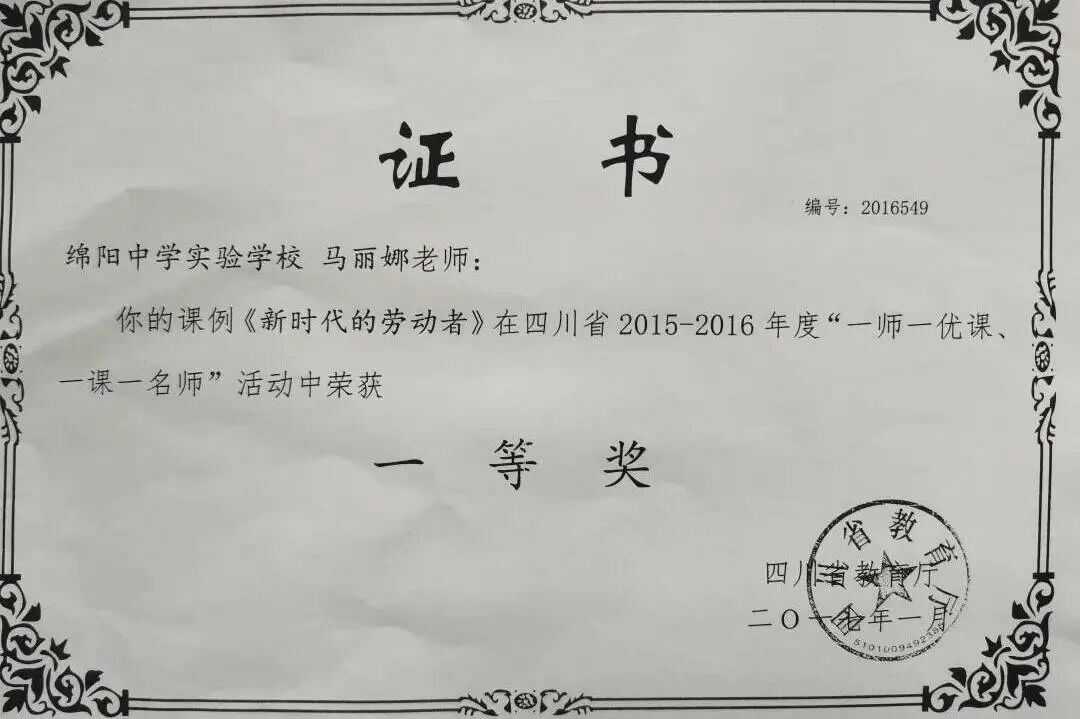 证 书
编号：2016549
绵阳中学实验学校 马丽娜老师：
你的课例《新时代的劳动者》在四川省2015-2016年度“一师一优课、
一课一名师”活动中荣获
一 等 奖
四川省教育厅
二〇一七年一月
四川省教育厅